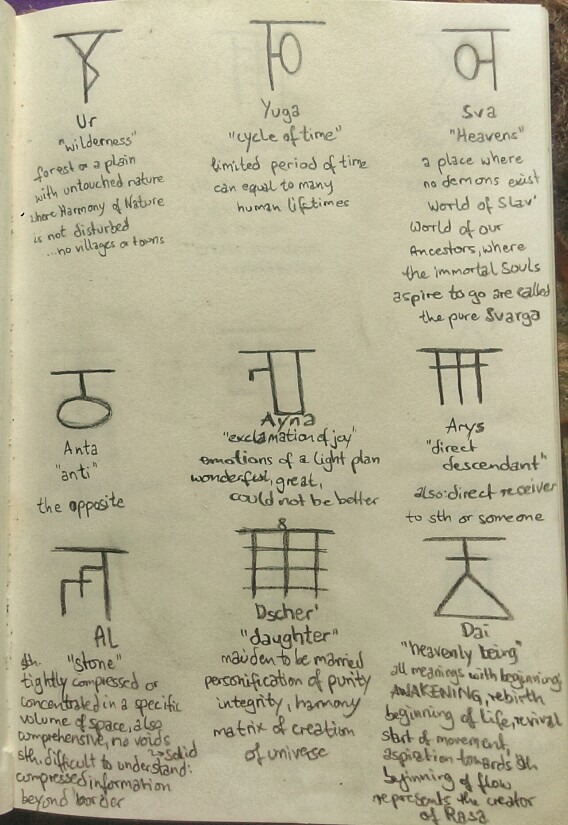 Ur
"wilderness"
forest or a plain
with untouched nature
where Harmony of Nature
is not disturbed
...no villages or towns
Yuga
"cycle of time"
limited period of time
can equal to many
human lifetimes
Sva
"Heavens"
a place where
no demons exist
World of Slav'
World of our
Ancestors, where
the immortal Souls
aspire to go are called
the pure Svarga
Anta
"anti"
the opposite
Ayna
"exclamation of joy"
emotions of a light plan
wonderful, great,
could not be better
Arys
"direct
descendant"
also: direct receiver
to sth or someone
AL
"stone"
sth.
tightly compressed or
concentrated in a specific
volume of space, also
comprehensive, no voids
→ solid
sth. difficult to understand:
compressed information
beyond border
8
Dscher'
"daughter"
maiden to be married
personification of purity
integrity, harmony
matrix of creation
of universe
Dai
"heavenly being"
all meanings with beginning,
AWAKENING, rebirth
beginning of life, revival
start of movement,
aspiration towards sth
beginning of flow
represents the creator
of Rasa